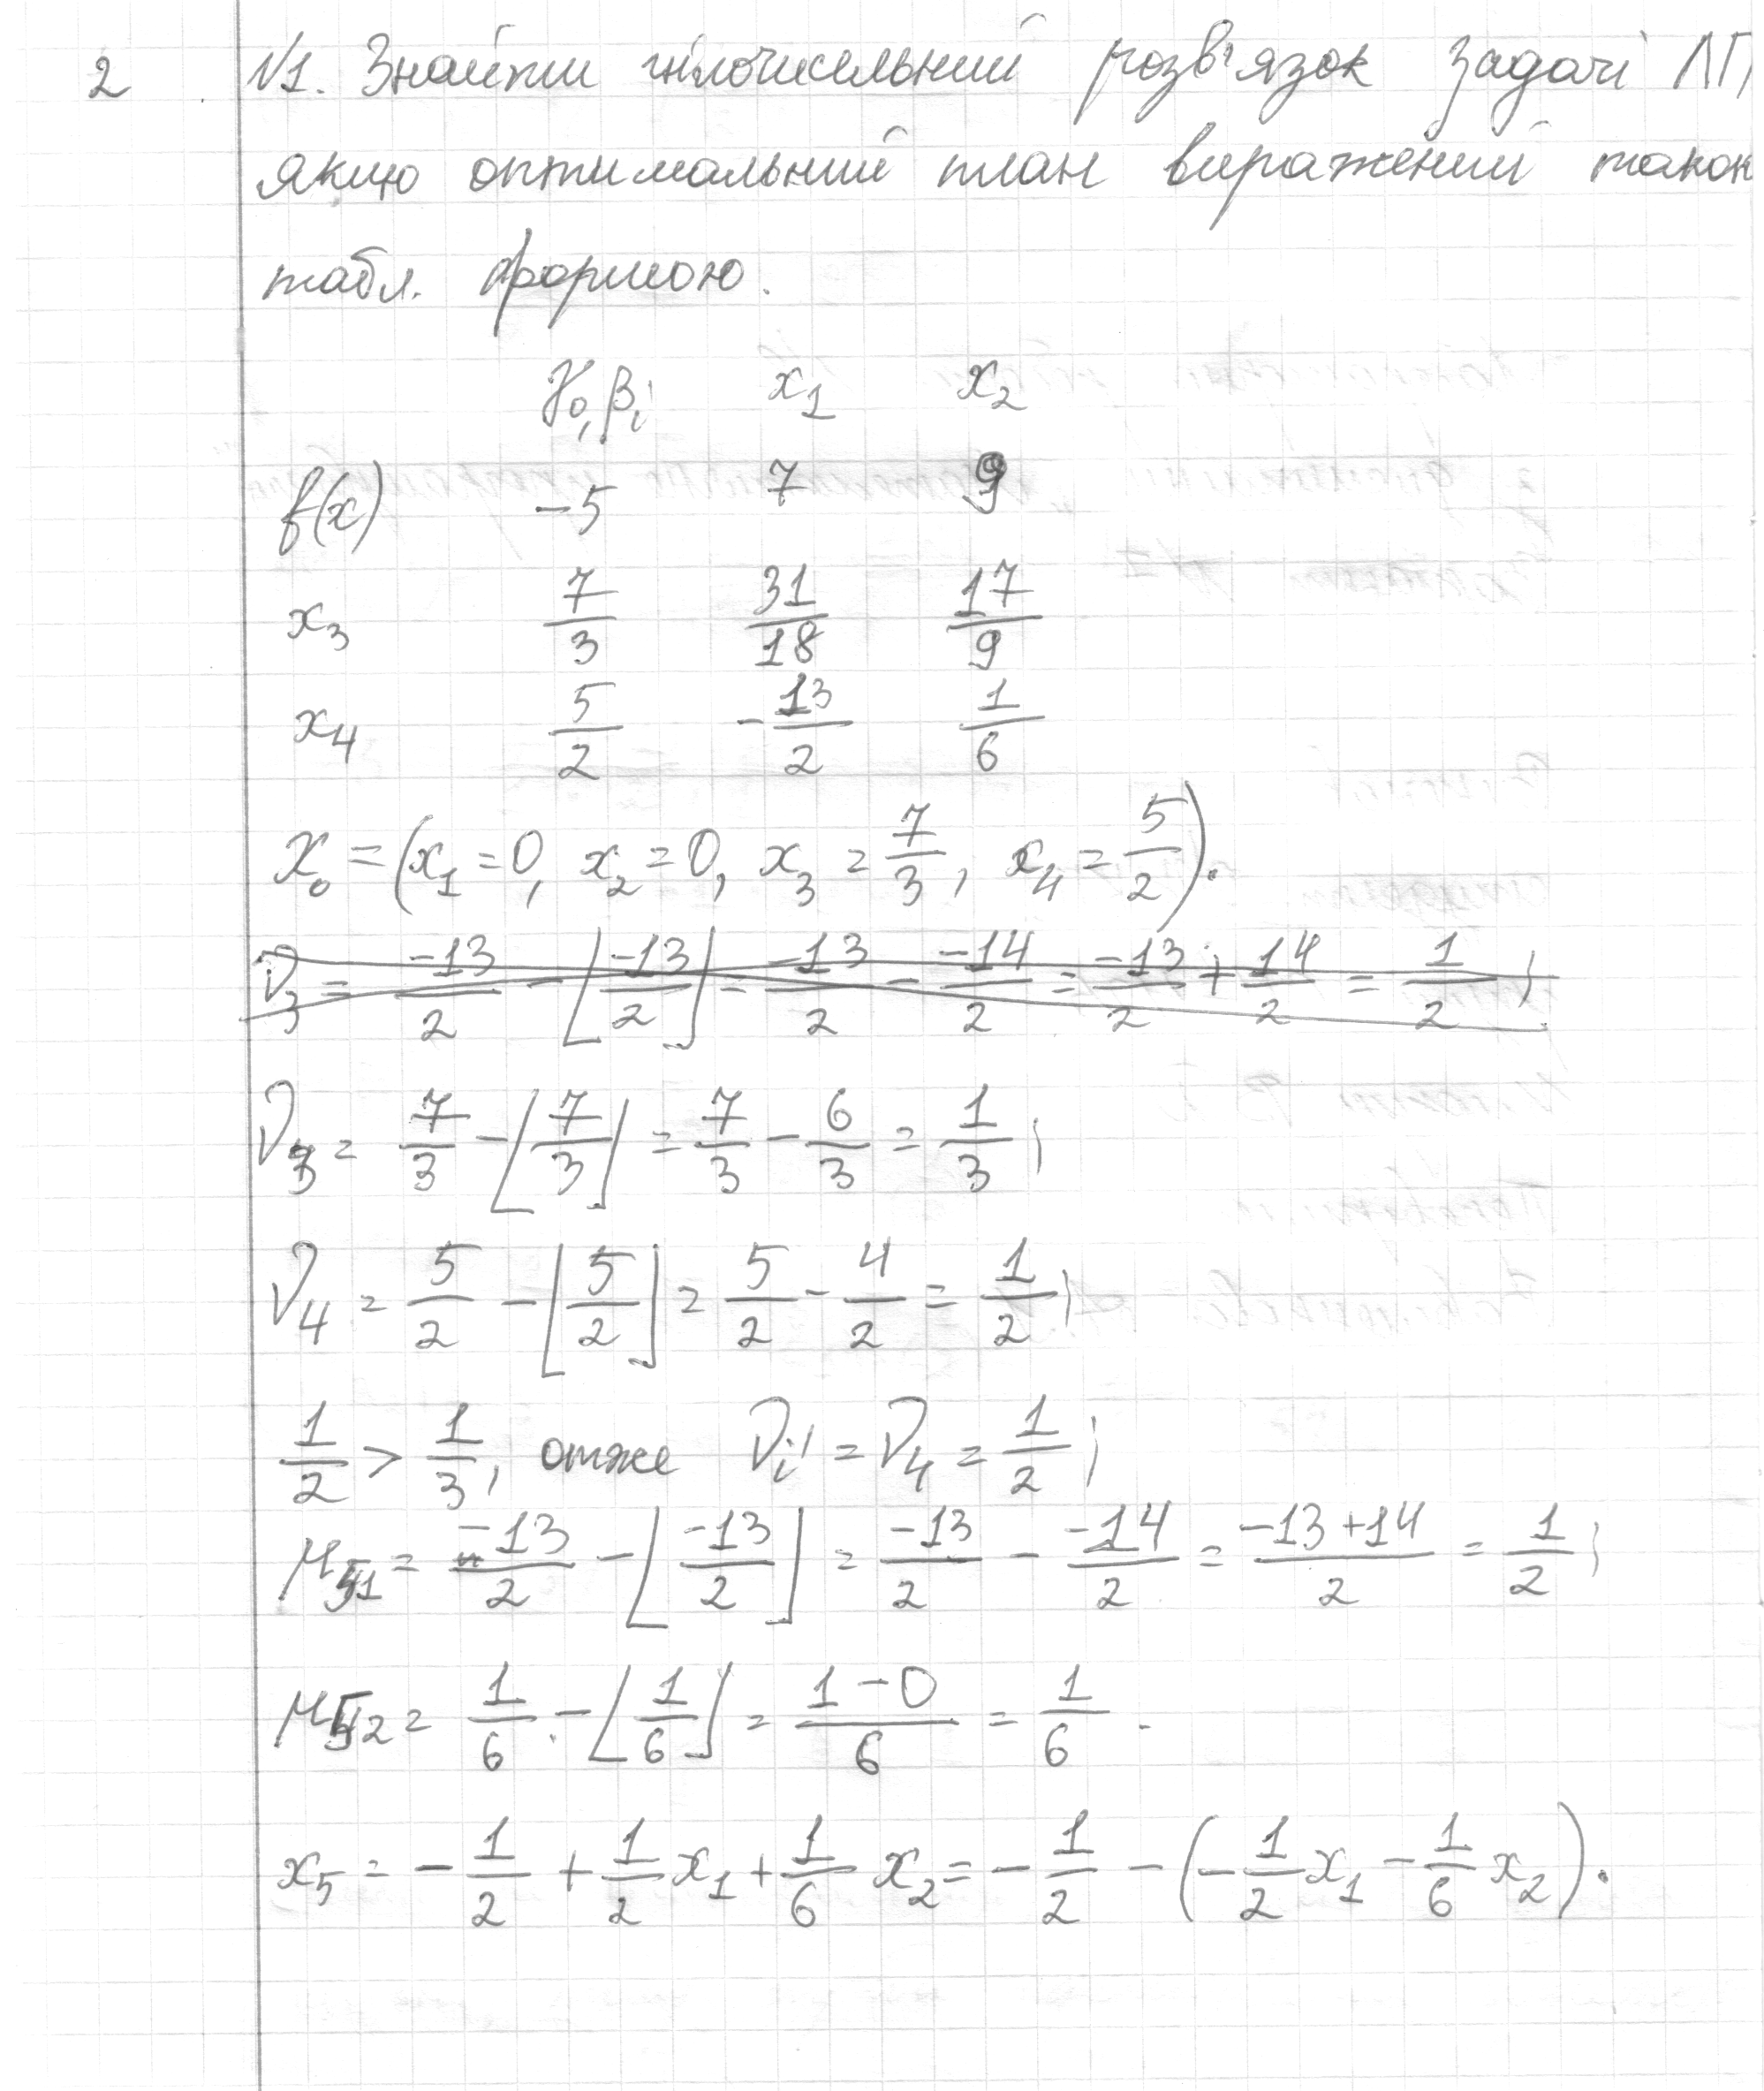 2 №1. Знайти цілочисельний розв'язок задачі ЛП
якщо оптимальний план виражений такою
табл. формою.
γ₀,βᵢ x₁ x₂
f(x) -5 7 9
x₃ 7/3 31/18 17/9
x₄ 5/2 -13/2 1/6
X₀ = (x₁ = 0, x₂ = 0, x₃ = 7/3, x₄ = 5/2).
ν₃ = -13/2 - ⌊-13/2⌋ = -13/2 - -14/2 = -13/2 + 14/2 = 1/2;
ν₃ = 7/3 - ⌊7/3⌋ = 7/3 - 6/3 = 1/3;
ν₄ = 5/2 - ⌊5/2⌋ = 5/2 - 4/2 = 1/2;
1/2 > 1/3, отже νᵢ' = ν₄ = 1/2;
μ₅₁ = -13/2 - ⌊-13/2⌋ = -13/2 - -14/2 = (-13+14)/2 = 1/2;
μ₅₂ = 1/6 - ⌊1/6⌋ = (1-0)/6 = 1/6.
x₅ = -1/2 + 1/2 x₁ + 1/6 x₂ = -1/2 - (-1/2 x₁ - 1/6 x₂).